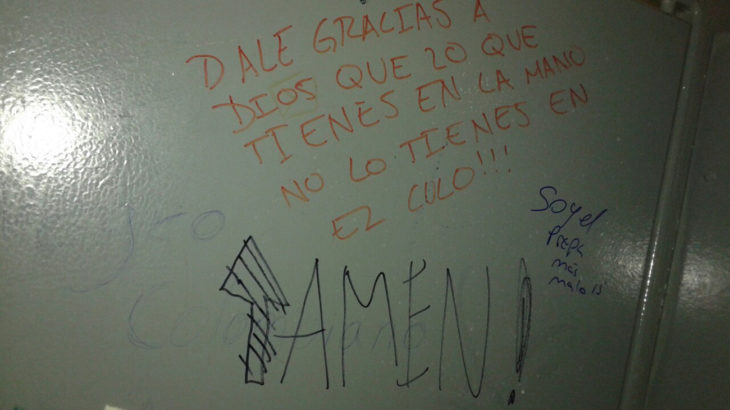 DALE GRACIAS A
DIOS QUE LO QUE
TIENES EN LA MANO
NO LO TIENES EN
EL CULO!!!
Soy el
Prepa
más
malo
¡AMEN!